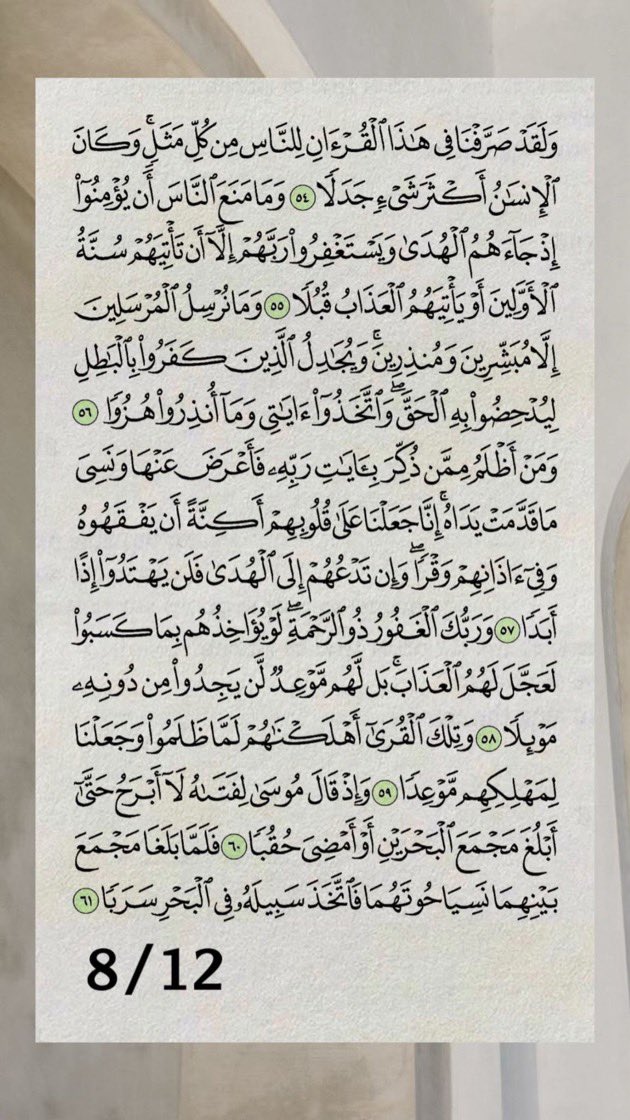 وَلَقَدْ صَرَّفْنَا فِى هَٰذَا ٱلْقُرْءَانِ لِلنَّاسِ مِن كُلِّ مَثَلٍۚ وَكَانَ
ٱلْإِنسَٰنُ أَكْثَرَ شَىْءٍ جَدَلًا ٥٤ وَمَا مَنَعَ ٱلنَّاسَ أَن يُؤْمِنُوٓا۟
إِذْ جَآءَهُمُ ٱلْهُدَىٰ وَيَسْتَغْفِرُوا۟ رَبَّهُمْ إِلَّآ أَن تَأْتِيَهُمْ سُنَّةُ
ٱلْأَوَّلِينَ أَوْ يَأْتِيَهُمُ ٱلْعَذَابُ قُبُلًا ٥٥ وَمَا نُرْسِلُ ٱلْمُرْسَلِينَ
إِلَّا مُبَشِّرِينَ وَمُنذِرِينَۚ وَيُجَٰدِلُ ٱلَّذِينَ كَفَرُوا۟ بِٱلْبَٰطِلِ
لِيُدْحِضُوا۟ بِهِ ٱلْحَقَّۖ وَٱتَّخَذُوٓا۟ ءَايَٰتِى وَمَآ أُنذِرُوا۟ هُزُوًا ٥٦
وَمَنْ أَظْلَمُ مِمَّن ذُكِّرَ بِـَٔايَٰتِ رَبِّهِۦ فَأَعْرَضَ عَنْهَا وَنَسِىَ
مَا قَدَّمَتْ يَدَاهُۚ إِنَّا جَعَلْنَا عَلَىٰ قُلُوبِهِمْ أَكِنَّةً أَن يَفْقَهُوهُ
وَفِىٓ ءَاذَانِهِمْ وَقْرًاۖ وَإِن تَدْعُهُمْ إِلَى ٱلْهُدَىٰ فَلَن يَهْتَدُوٓا۟ إِذًا
أَبَدًا ٥٧ وَرَبُّكَ ٱلْغَفُورُ ذُو ٱلرَّحْمَةِۖ لَوْ يُؤَاخِذُهُم بِمَا كَسَبُوا۟
لَعَجَّلَ لَهُمُ ٱلْعَذَابَۚ بَل لَّهُم مَّوْعِدٌ لَّن يَجِدُوا۟ مِن دُونِهِۦ
مَوْئِلًا ٥٨ وَتِلْكَ ٱلْقُرَىٰٓ أَهْلَكْنَٰهُمْ لَمَّا ظَلَمُوا۟ وَجَعَلْنَا
لِمَهْلِكِهِم مَّوْعِدًا ٥٩ وَإِذْ قَالَ مُوسَىٰ لِفَتَىٰهُ لَآ أَبْرَحُ حَتَّىٰٓ
أَبْلُغَ مَجْمَعَ ٱلْبَحْرَيْنِ أَوْ أَمْضِىَ حُقُبًا ٦٠ فَلَمَّا بَلَغَا مَجْمَعَ
بَيْنِهِمَا نَسِيَا حُوتَهُمَا فَٱتَّخَذَ سَبِيلَهُۥ فِى ٱلْبَحْرِ سَرَبًا ٦١
8/12